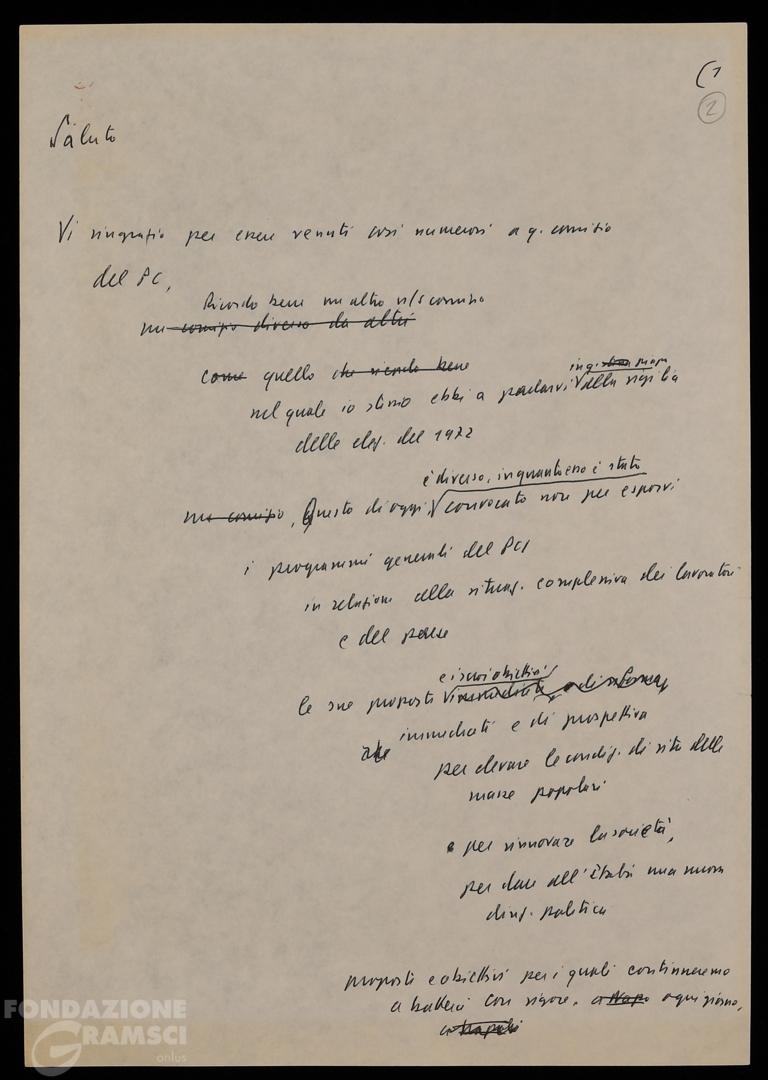 (1
2
Saluto
Vi ringrazio per essere venuti così numerosi a q. comizio
del PC,
Ricordo bene un altro n/s comizio
un comizio diverso da altri
come quello che ricordo bene
nel quale io stesso ebbi a parlarvi alla vigilia
delle elez. del 1972
è diverso, in quanto esso è stato
un comizio, Questo di oggi convocato non per esporvi
i programmi generali del PCI
in relazione alla situaz. complessiva dei lavoratori
e del paese
e i suoi obiettivi
le sue proposte
immediati e di prospettiva
per elevare le condiz. di vita delle
masse popolari
e per rinnovare la società,
per dare all'Italia una nuova
direz. politica
proposte e obiettivi per i quali continueremo
a batterci con vigore, a Napo ogni giorno,
a Napoli
FONDAZIONE
GRAMSCI
onlus